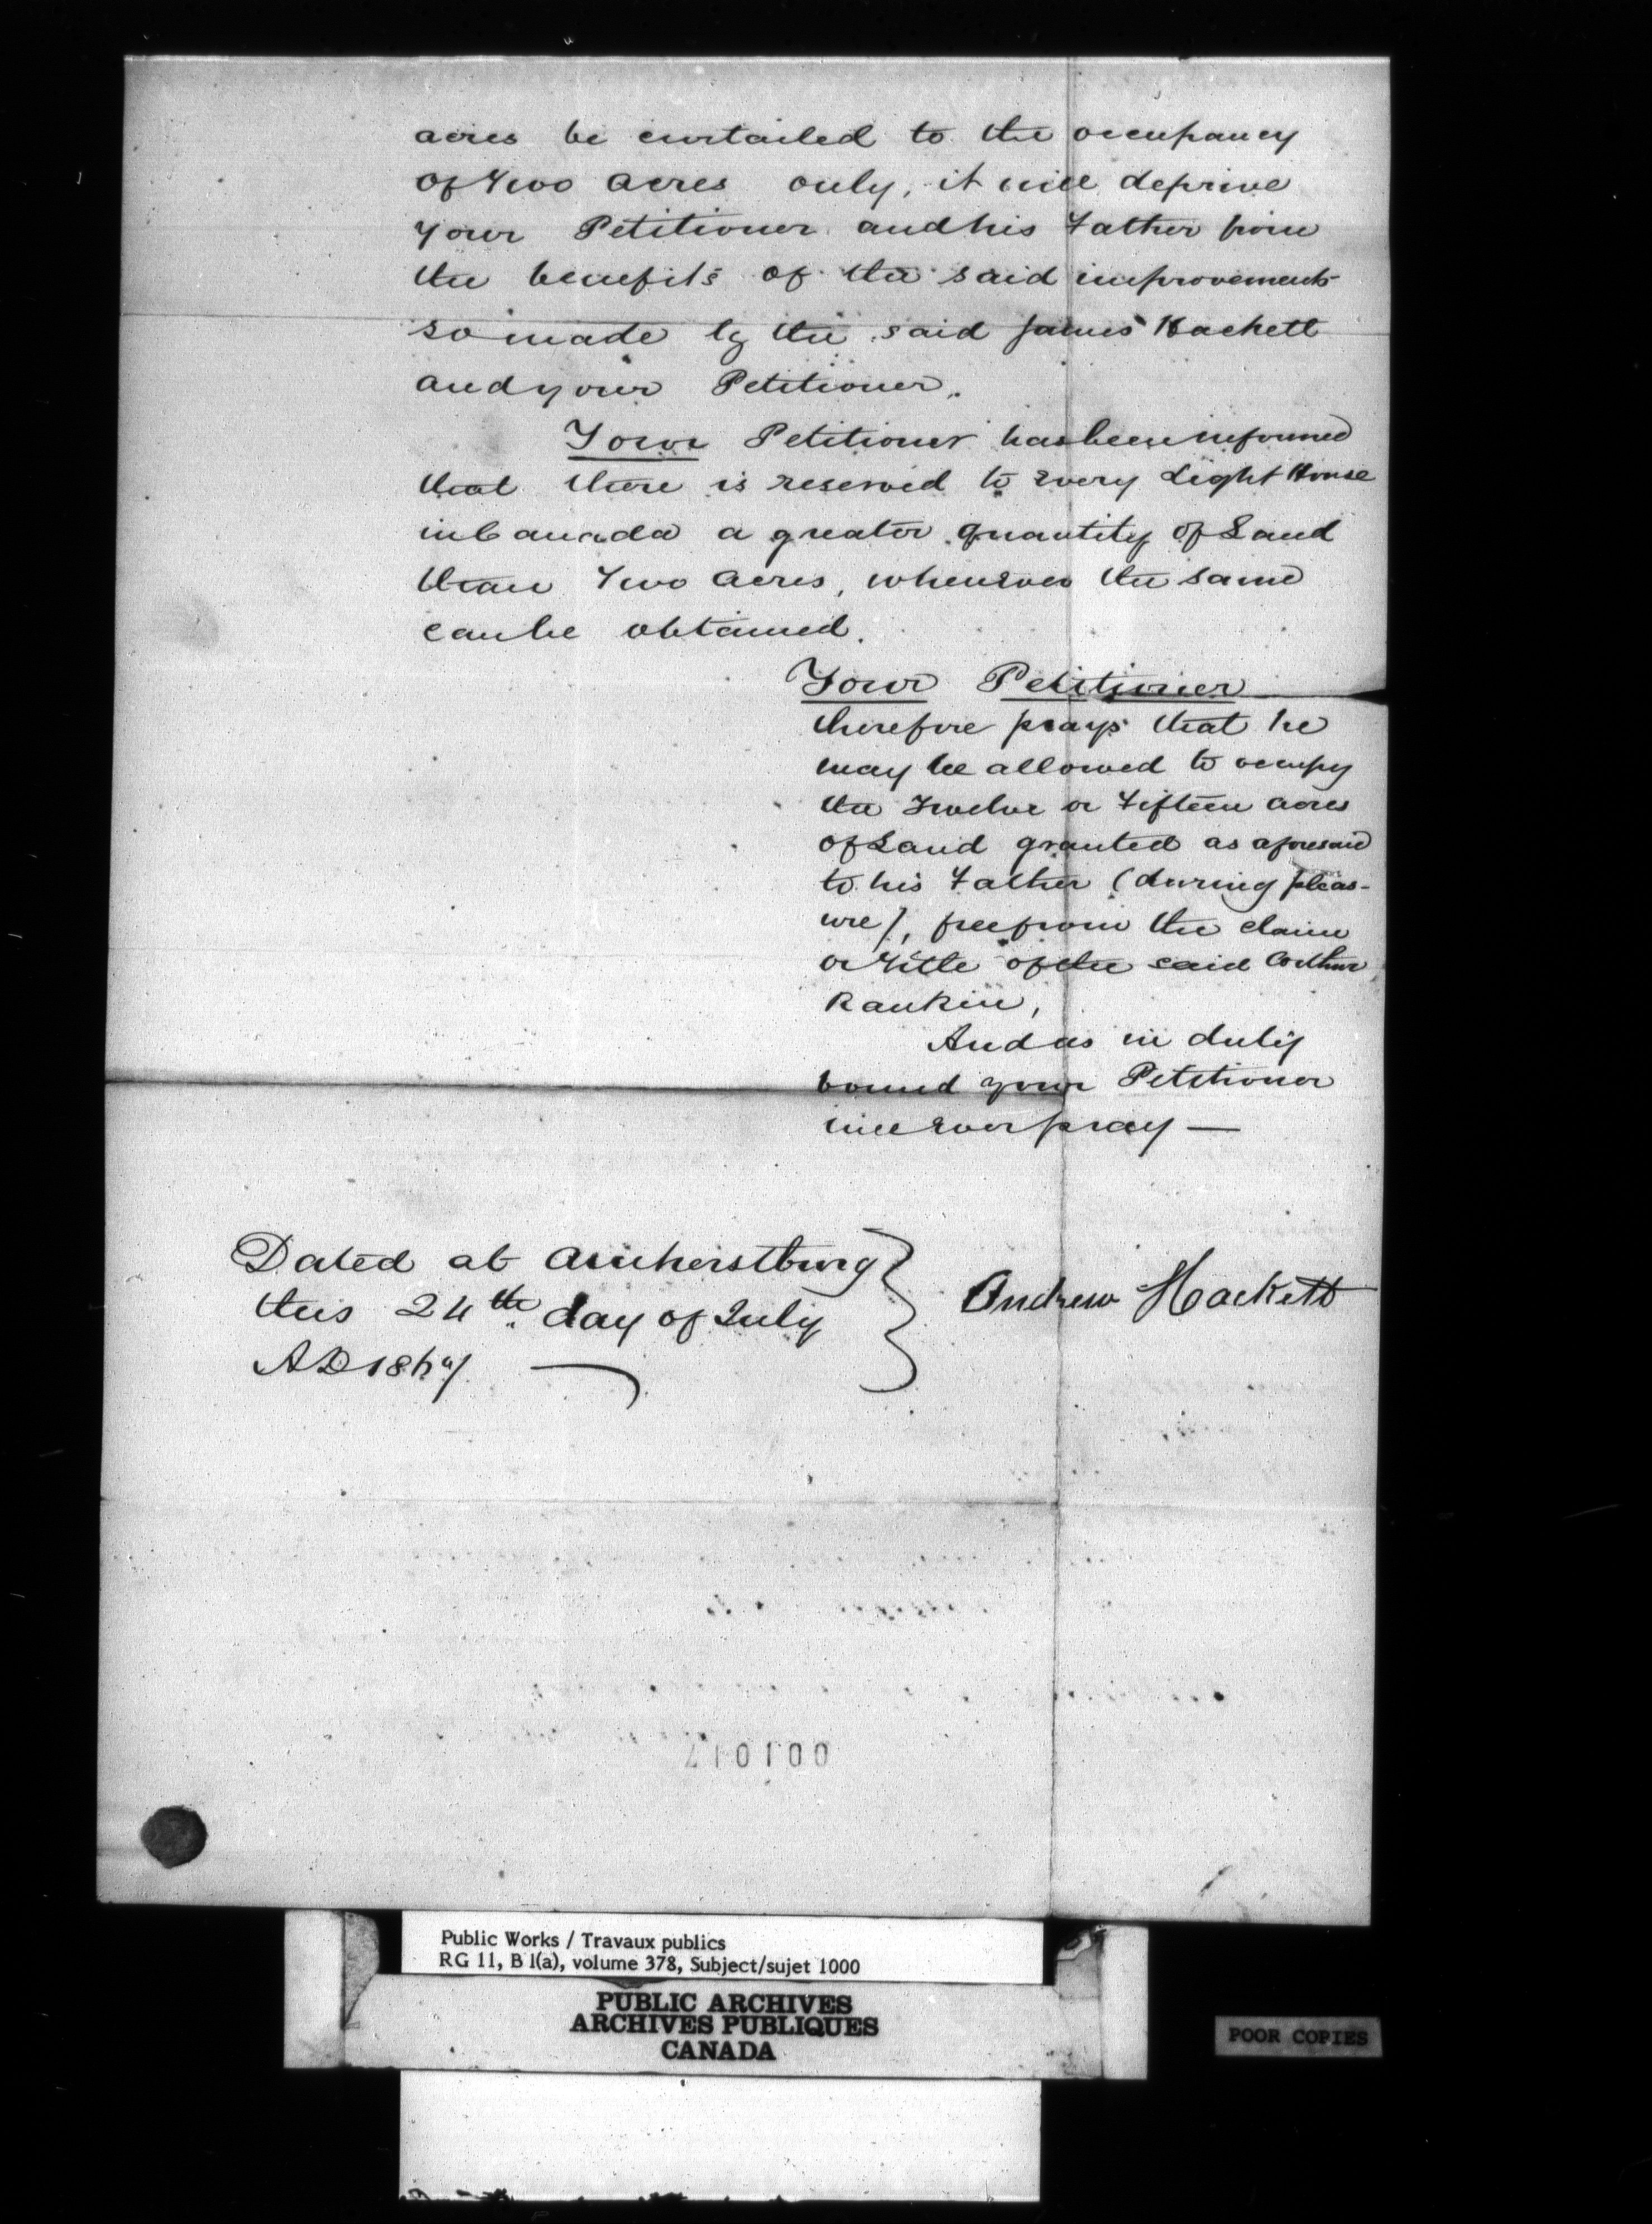 acres be curtailed to the occupancy
of Two acres only, it will deprive
your Petitioner and his Father from
the benefits of the said improvements
so made by the said James Hackett
and your Petitioner.
Your Petitioner has been informed
that there is reserved to every Light House
in Canada a greater quantity of Land
than Two acres, whenever the same
can be obtained.
Your Petitioner
therefore prays that he
may be allowed to occupy
the Twelve or Fifteen acres
of Land granted as aforesaid
to his Father (during pleas-
ure), free from the claim
or Title of the said Arthur
Rankin,
And as in duty
bound your Petitioner
will ever pray —
Dated at Amherstburg
this 24th day of July
AD 1867
Andrew Hackett
210100
Public Works / Travaux publics
RG 11, B 1(a), volume 378, Subject/sujet 1000
PUBLIC ARCHIVES
ARCHIVES PUBLIQUES
CANADA
POOR COPIES